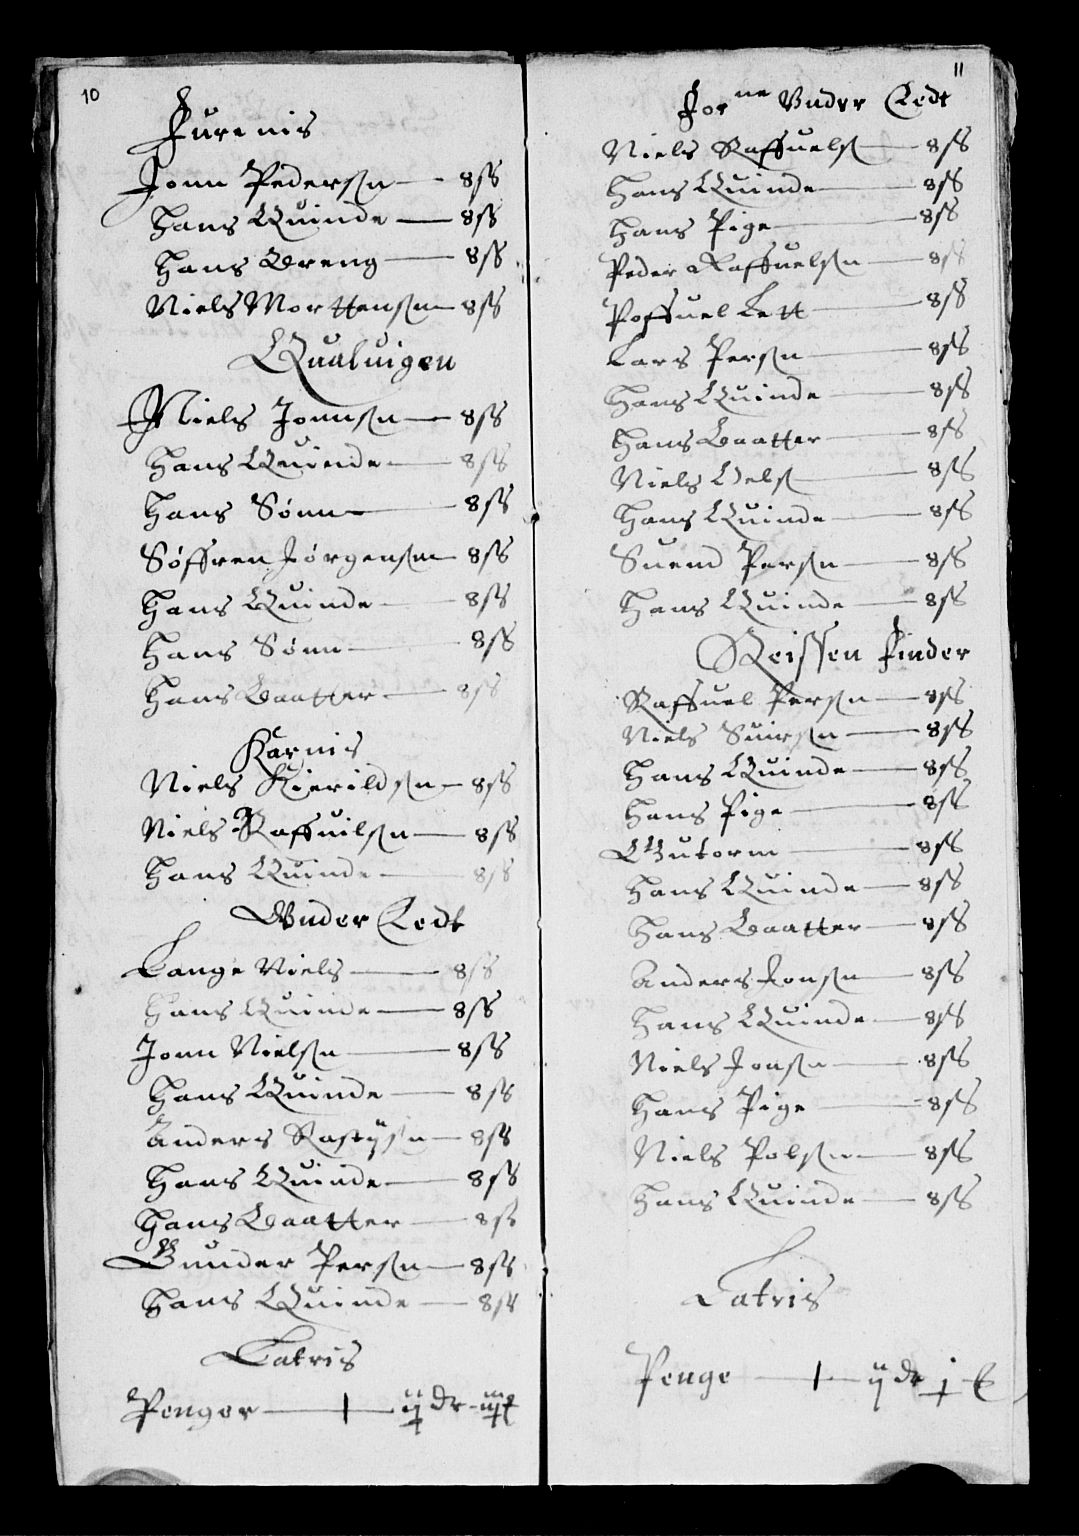 10
Furenis
Jonn Pedersn 8 ß
Hans Quinde 8 ß
Hans Dreng 8 ß
Niels Morttensn 8 ß
Qualuigen
Niels Jonnsn 8 ß
Hans Quinde 8 ß
Hans Sønn 8 ß
Søffren Jørgensn 8 ß
Hans Quinde 8 ß
Hans Sønn 8 ß
Hans Daatter 8 ß
Karnis
Niels Kierildsn 8 ß
Niels Raffuilsn 8 ß
Hans Quinde 8 ß
Vnder Ledt
Lange Niels 8 ß
Hans Quinde 8 ß
Jonn Nielsn 8 ß
Hans Quinde 8 ß
Anders 8 ß
Hans Quinde 8 ß
Hans Daatter 8 ß
Gunder Persn 8 ß
Hans Quinde 8 ß
Latris
Penger 1 ij dr
11
For ne Vnder Ledt
Niels Raffuels 8 ß
Hans Quinde 8 ß
Hans Pige 8 ß
Peder Raffuelsn 8 ß
Poffuel Lett 8 ß
Lars Persn 8 ß
Hans Quinde 8 ß
Hans Daatter 8 ß
Niels Oels 8 ß
Hans Quinde 8 ß
Suend Persn 8 ß
Hans Quinde 8 ß
Reissen Finder
Raffuel Persn 8 ß
Niels Suirsn 8 ß
Hans Quinde 8 ß
Hans Pige 8 ß
Gutorm 8 ß
Hans Quinde 8 ß
Hans Daatter 8 ß
Anders Jonsn 8 ß
Hans Quinde 8 ß
Niels Jonsn 8 ß
Hans Pige 8 ß
Niels Polsn 8 ß
Hans Quinde 8 ß
Latris
Penge 1 ij dr j